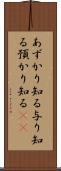 あずかり知る与り知
る預かり知る《《